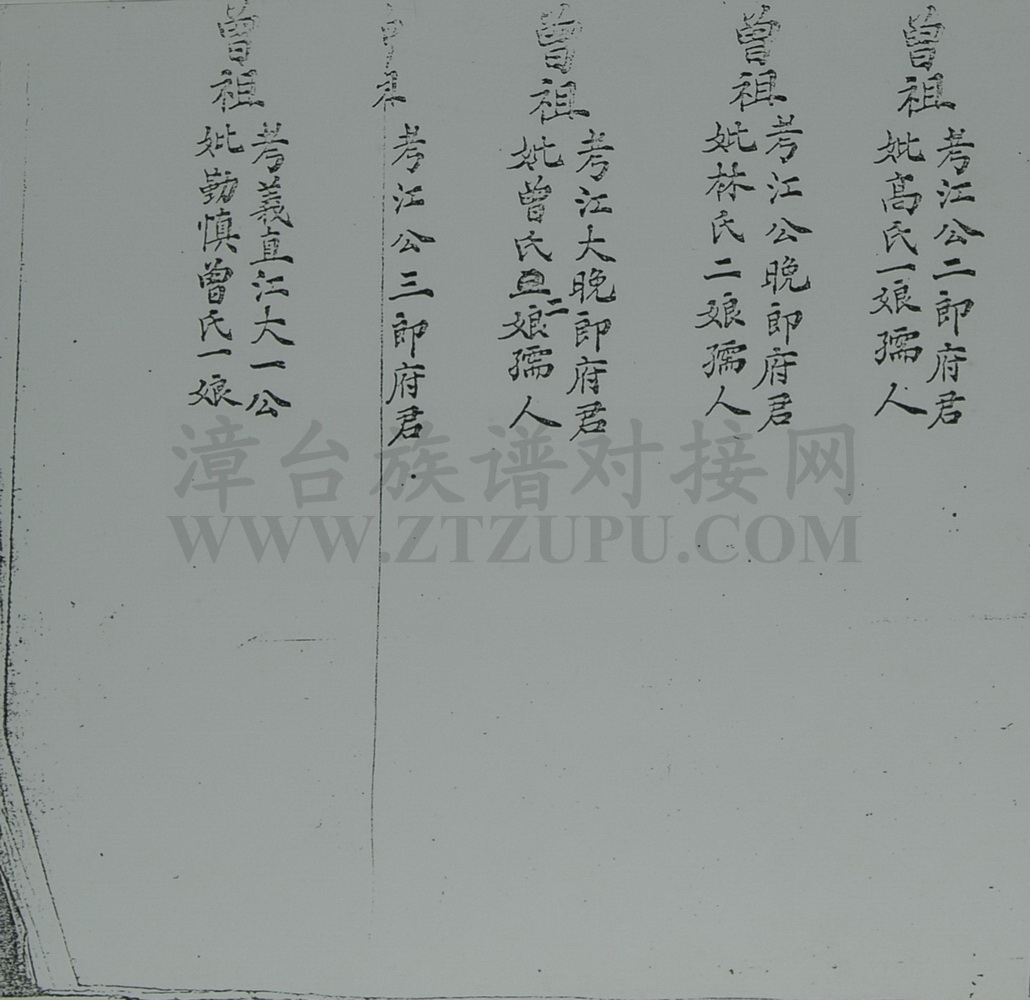 曾祖
考江公二郎府君
妣高氏一娘孺人
曾祖
考江公晚郎府君
妣林氏二娘孺人
曾祖
考江大晚郎府君
妣曾氏二娘孺人
曾祖
考江公三郎府君
曾祖
考義直江大一公
妣勤慎曾氏一娘
漳台族谱对接网
WWW.ZTZUPU.COM